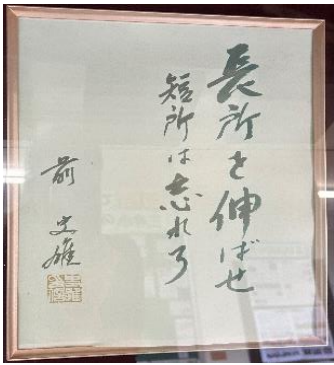 長所を伸ばせ
短所は忘れろ
前 史雄